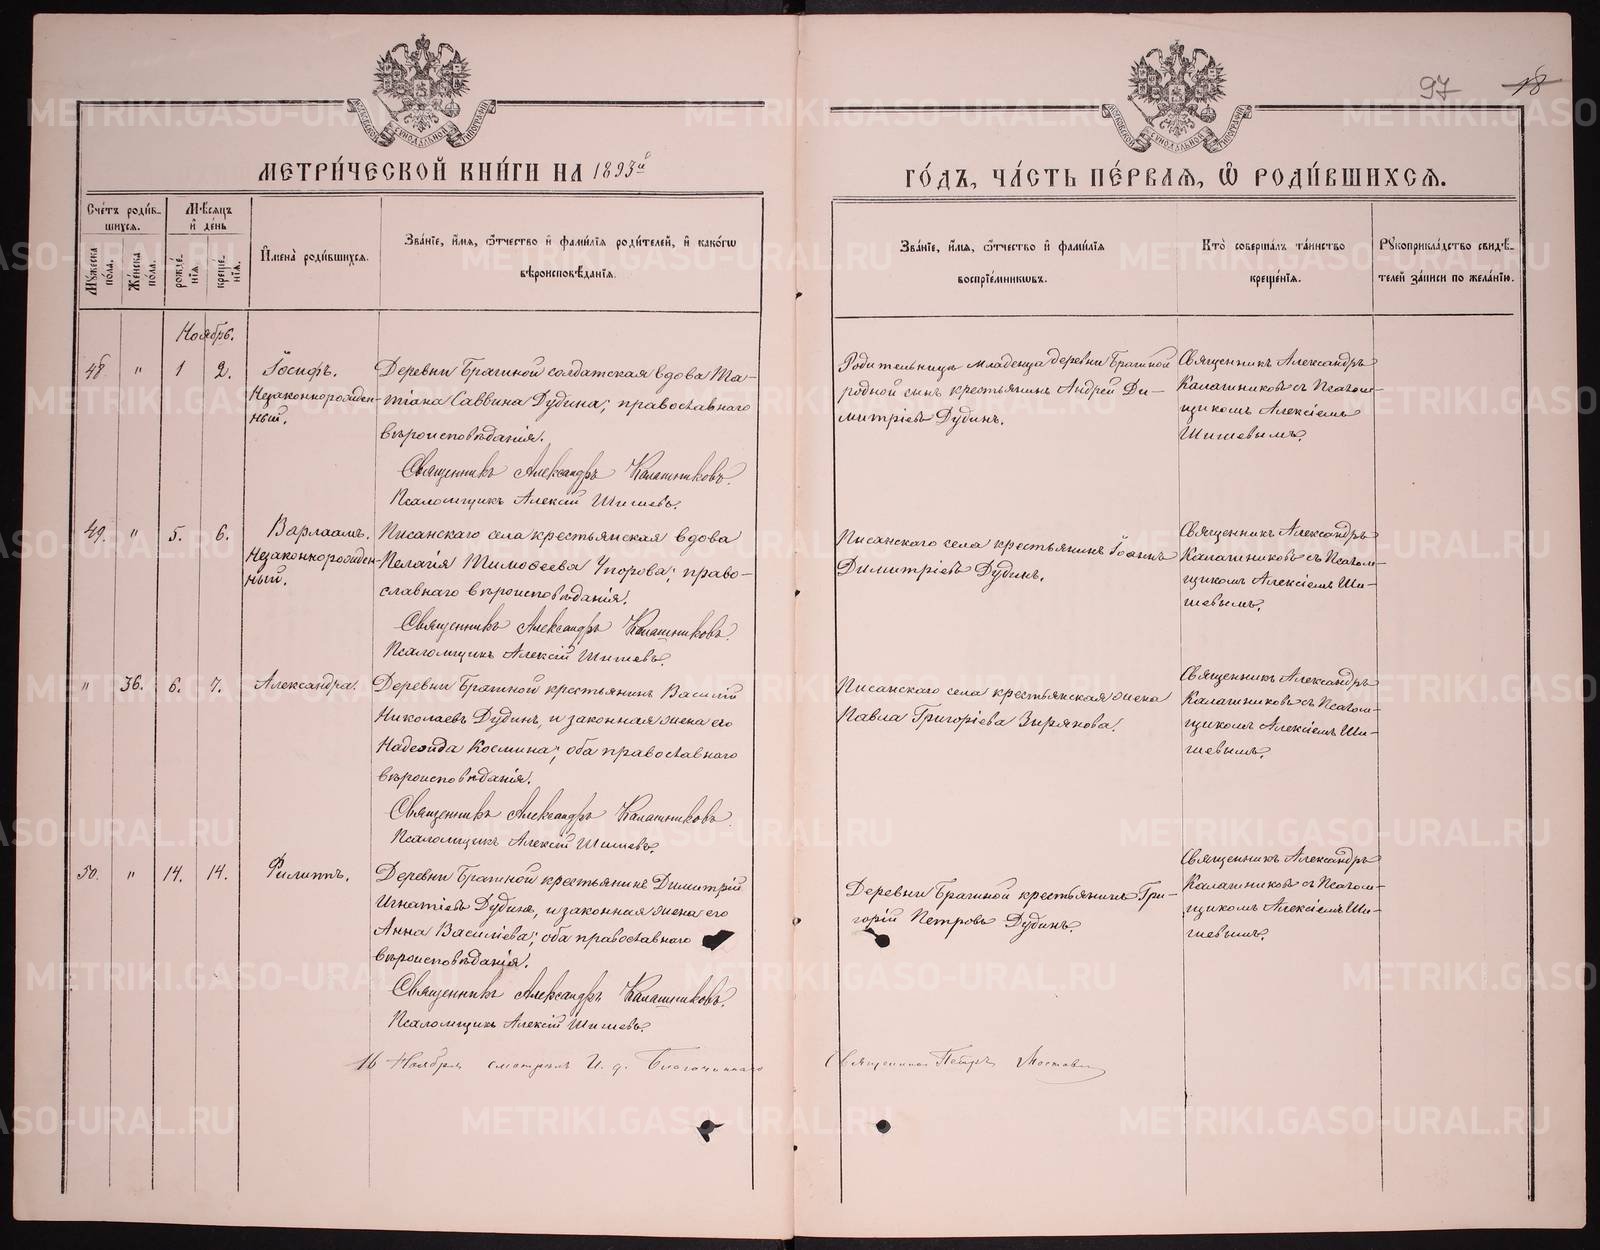 97 18
МЕТРИ́ЧЕСКОЙ КНИ́ГИ НА 1893й
ГО́ДЪ, ЧА́СТЬ ПЕ́РВАѦ, Ѡ РОДИ́ВШИХСѦ.
Сче́тъ роди́в-
шихсѧ.
Мꙋ́жеска
пола.
Же́нска
пола.
Мѣ́сѧцъ
и҆ де́нь
рожде́-
нїѧ.
креще́-
нїѧ.
И҆мена̀ роди́вшихсѧ.
Зва́нїе, и҆́мѧ, ѻ҆́тчество и҆ фами́лїѧ роди́телей, и҆ како́гѡ
вѣроисповѣ́данїѧ.
Зва́нїе, и҆́мѧ, ѻ҆́тчество и҆ фами́лїѧ
воспрїе́мникѡвъ.
Кто̀ соверша́лъ та́инство
креще́нїѧ.
Рꙋкоприкла́дство свидѣ́-
телей за́писи по жела́нїю.
Ноябрь.
48 " 1 2. Іосифъ.
Незаконнорожден-
ный.
Деревни Брагиной солдатская вдова Та-
тіана Саввина Дудина; православнаго
вѣроисповѣданія.
Священникъ Александръ Калашниковъ.
Псаломщикъ Алексій Шишевъ.
Родительницы младенца деревни Брагиной
родной сынъ крестьянинъ Андрей Ди-
митріевъ Дудинъ.
Священникъ Александръ
Калашниковъ съ Псалом-
щикомъ Алексіемъ
Шишевымъ.
49. " 5. 6. Варлаамъ.
Незаконнорожден-
ный.
Писанскаго села крестьянская вдова
Пелагія Тимоѳеева Упорова; право-
славнаго вѣроисповѣданія.
Священникъ Александръ Калашниковъ.
Псаломщикъ Алексій Шишевъ.
Писанскаго села крестьянинъ Іоаннъ
Димитріевъ Дудинъ.
Священникъ Александръ
Калашниковъ съ Псалом-
щикомъ Алексіемъ Ши-
шевымъ.
" 36. 6. 7. Александра.
Деревни Брагиной крестьянинъ Василій
Николаевъ Дудинъ, и законная жена его
Надежда Космина; оба православнаго
вѣроисповѣданія.
Священникъ Александръ Калашниковъ
Псаломщикъ Алексій Шишевъ.
Писанскаго села крестьянская жена
Павла Григоріева Зырянова.
Священникъ Александръ
Калашниковъ съ Псалом-
щикомъ Алексіемъ Ши-
шевымъ.
50. " 14. 14. Филиппъ.
Деревни Брагиной крестьянинъ Димитрій
Игнатіевъ Дудинъ, и законная жена его
Анна Василіева; оба православнаго
вѣроисповѣданія.
Священникъ Александръ Калашниковъ.
Псаломщикъ Алексій Шишевъ.
Деревни Брагиной крестьянинъ Гри-
горій Петровъ Дудинъ.
Священникъ Александръ
Калашниковъ съ Псалом-
щикомъ Алексіемъ Ши-
шевымъ.
16 Ноября смотрѣлъ И. д. Благочиннаго Священникъ Петръ